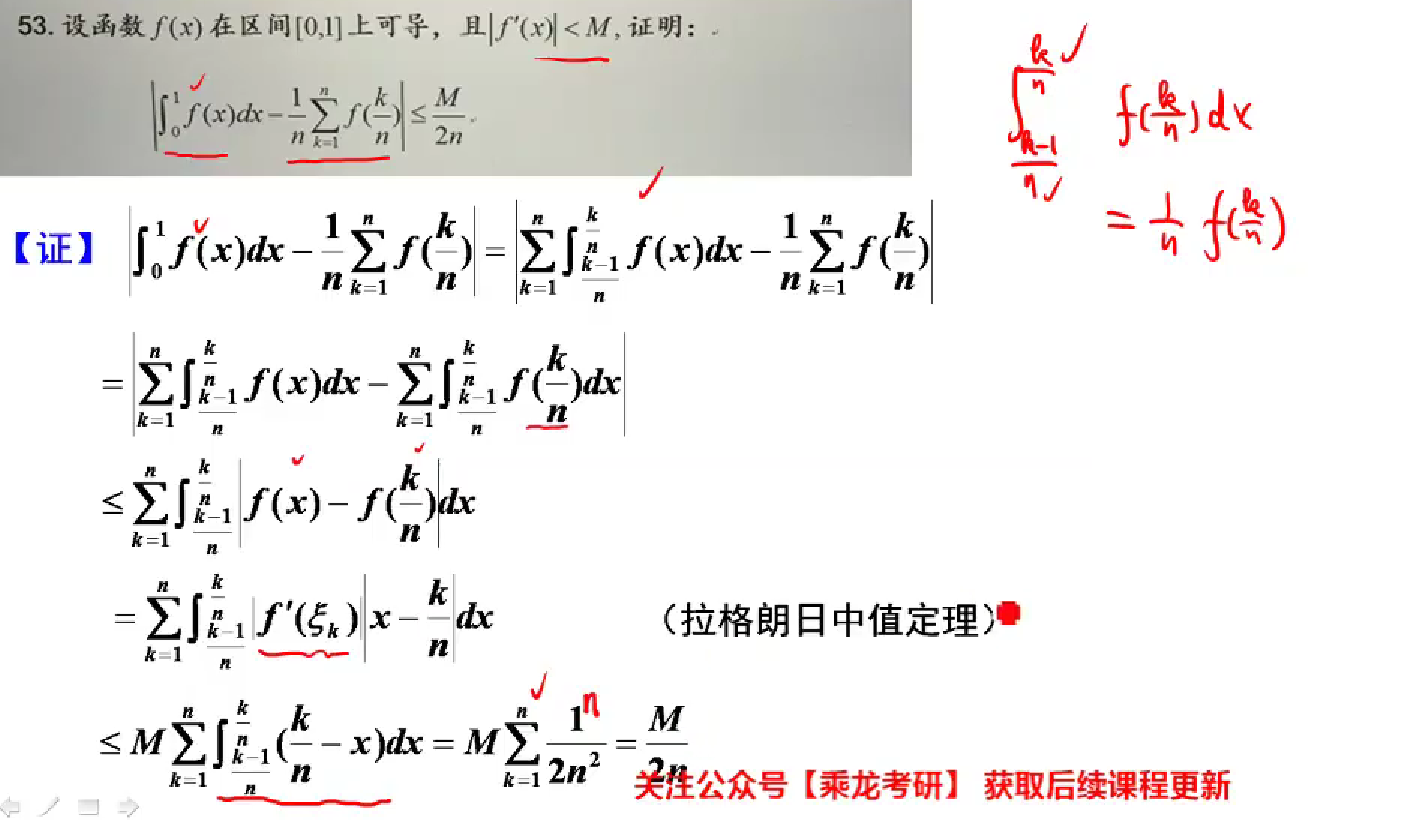 53. 设函数 f(x) 在区间[0,1]上可导，且|f′(x)| < M, 证明：
|∫₀¹ f(x)dx − 1/n ∑ₖ₌₁ⁿ f(k/n)| ≤ M/2n.
∫_{(k-1)/n}^{k/n} f(k/n)dx
= 1/n f(k/n)
【证】 |∫₀¹ f(x)dx − 1/n ∑ₖ₌₁ⁿ f(k/n)| = |∑ₖ₌₁ⁿ ∫_{(k−1)/n}^{k/n} f(x)dx − 1/n ∑ₖ₌₁ⁿ f(k/n)|
= |∑ₖ₌₁ⁿ ∫_{(k−1)/n}^{k/n} f(x)dx − ∑ₖ₌₁ⁿ ∫_{(k−1)/n}^{k/n} f(k/n)dx|
≤ ∑ₖ₌₁ⁿ ∫_{(k−1)/n}^{k/n} |f(x) − f(k/n)|dx
= ∑ₖ₌₁ⁿ ∫_{(k−1)/n}^{k/n} |f′(ξₖ)||x − k/n|dx （拉格朗日中值定理）
≤ M ∑ₖ₌₁ⁿ ∫_{(k−1)/n}^{k/n} (k/n − x)dx = M ∑ₖ₌₁ⁿ 1/2n² = M/2n
n
关注公众号【乘龙考研】 获取后续课程更新